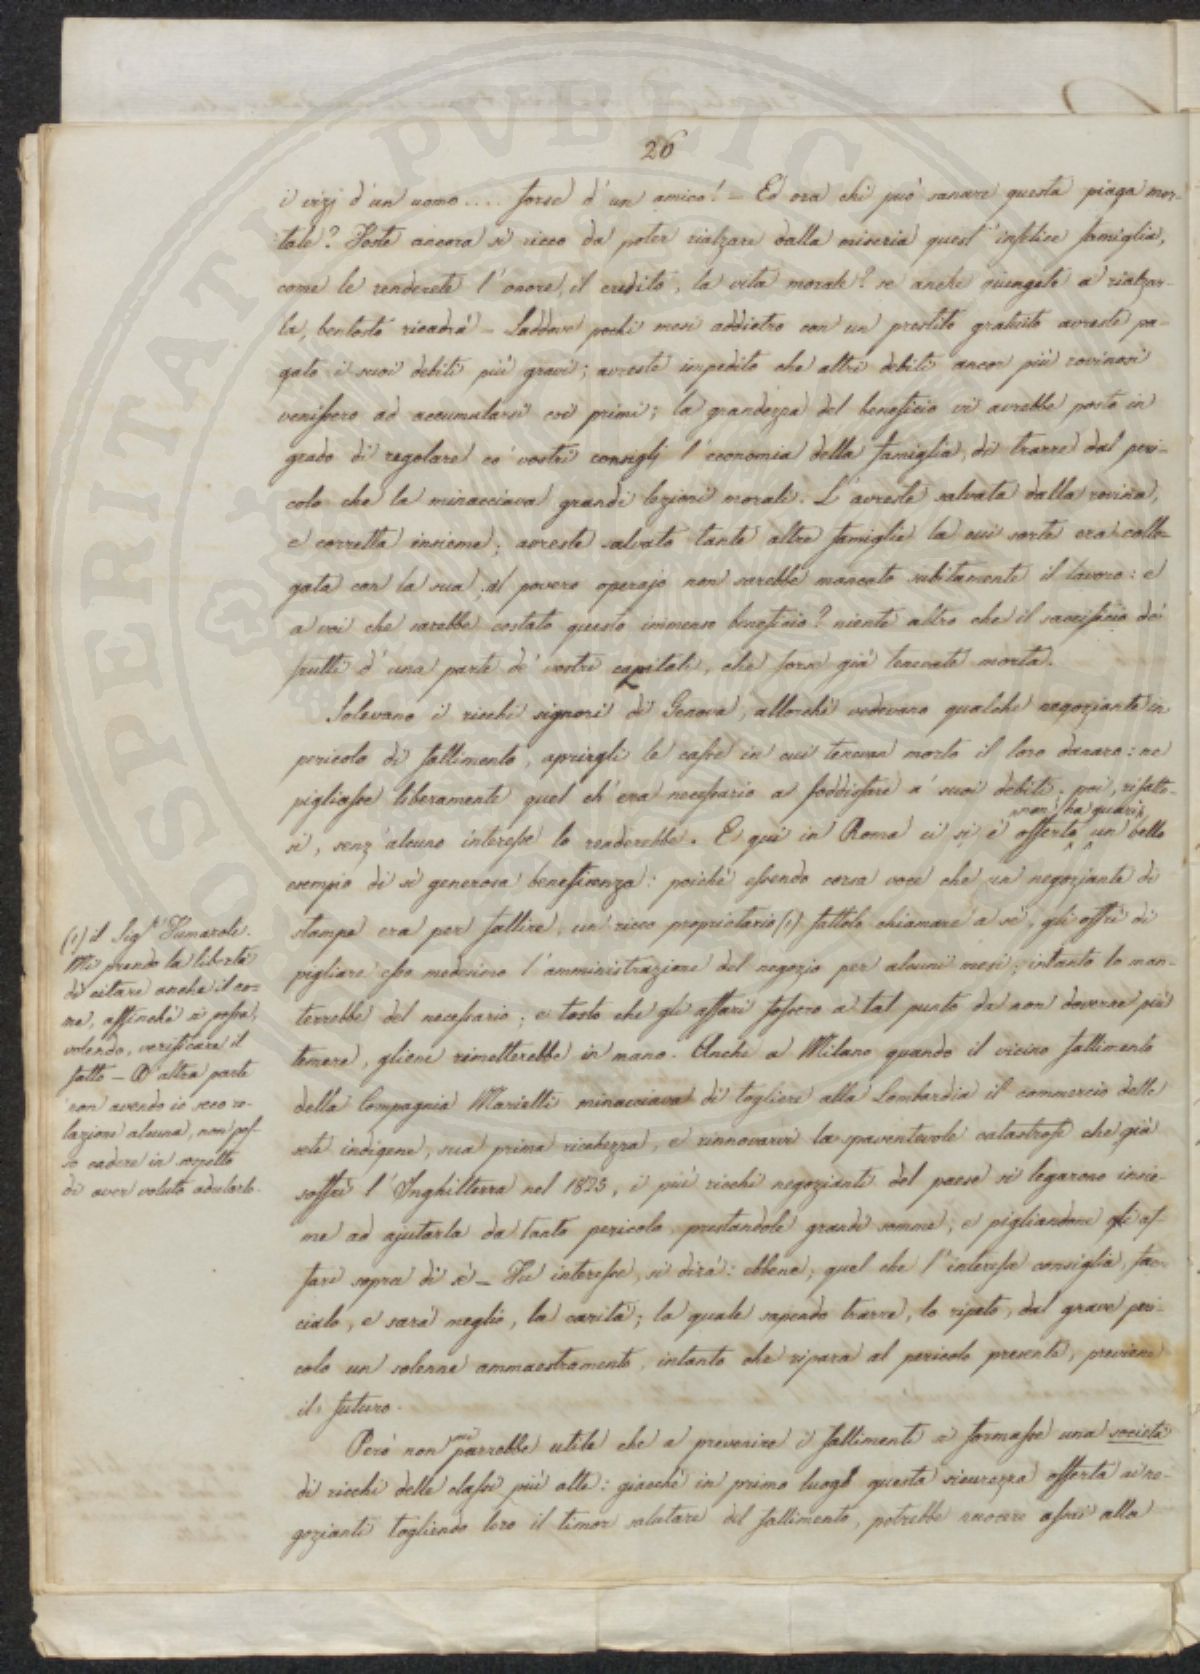 26
i vizj d'un uomo .... forse d'un amico! = Ed ora chi può sanare questa piaga mor-
tale? Foste ancora sì ricco da poter rialzare dalla miseria quest'infelice famiglia,
come le renderete l'onore, il credito, la vita morale? se anche giungete a rialzar-
la, bentosto ricadrà – Laddove pochi mesi addietro con un prestito gratuito avreste pa-
gato i suoi debiti più gravi; avreste impedito che altri debiti ancor più rovinosi
venissero ad accumularsi coi primi; la grandezza del beneficio vi avrebbe posto in
grado di regolare co' vostri consiglj l'economia della famiglia, di trarre dal peri-
colo che la minacciava grandi lezioni morali. L'avreste salvata dalla rovina,
e corretta insieme; avreste salvato tante altre famiglie la cui sorte era colle-
gata con la sua; al povero operajo non sarebbe mancato subitamente il lavoro: e
a voi che sarebbe costato questo immenso beneficio? niente altro che il sacrificio de'
frutti d'una parte de' vostri capitali, che forse già tenevate morta.
Solevano i ricchi signori di Genova, allorchè vedevano qualche negoziante in
pericolo di fallimento, aprirgli le casse in cui tenevan morto il loro danaro: ne
pigliasse liberamente quel ch'era necessario a soddisfare a' suoi debiti; poi, rifatto-
si, senz'alcuno interesse lo renderebbe. E qui in Roma ci si è offerto non ha guari un bello
esempio di sì generosa beneficenza: poichè essendo corsa voce che un negoziante di
stampe era per fallire, un ricco proprietario (1) fattolo chiamare a sè, gli offrì di
pigliare esso medesimo l'amministrazione del negozio per alcuni mesi; intanto lo man-
terrebbe del necessario; e tosto che gli affari fossero a tal punto da non doverne più
temere, glieni rimetterebbe in mano. Anche a Milano quando il vicino fallimento
della Compagnia Marietti minacciava di togliere alla Lombardia il commercio delle
sete indigene, sua prima ricchezza, e rinnovarvi la spaventevole catastrofe che già
soffrì l'Inghilterra nel 1825, i più ricchi negozianti del paese si legarono insie-
me ad ajutarla da tanto pericolo, prestandole grandi somme, e pigliandone gli af-
fari sopra di sè – Fu interesse, si dirà: ebbene, quel che l'interesse consiglia, fac-
cialo, e sarà meglio, la carità; la quale sapendo trarre, lo ripeto, dal grave peri-
colo un solenne ammaestramento, intanto che ripara al pericolo presente, previene
il futuro.
Però non mi parrebbe utile che a prevenire i fallimenti si formasse una società
di ricchi delle classi più alte: giacchè in primo luogo questa sicurezza offerta ai ne-
gozianti togliendo loro il timor salutare del fallimento, potrebbe nuocere assai alla
(1) il Sig.r Fumaroli.
Mi prendo la libertà
di citare anche il no-
me, affinchè si possa,
volendo, verificare il
fatto – D'altra parte
non avendo io seco re-
lazione alcuna, non pos-
so cadere in sospetto
di aver voluto adularlo.